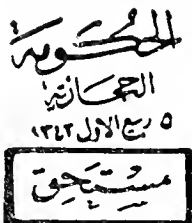 الحكومة
الحجازية
٥ ربيع الاول ١٣٤٣
مستحق